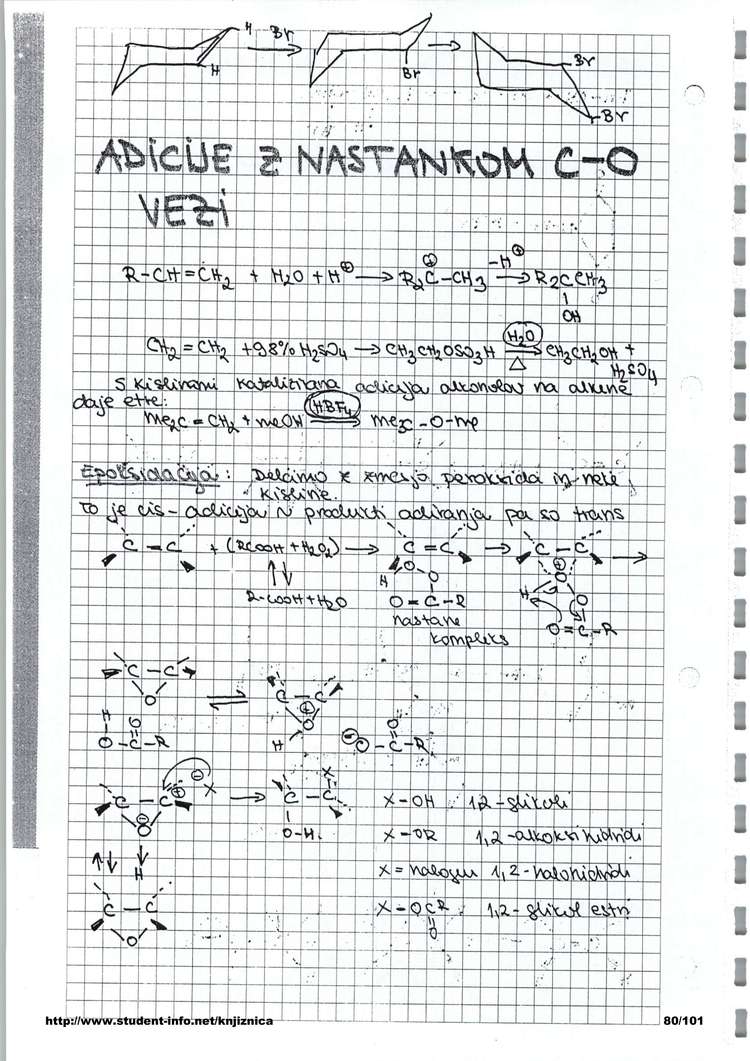 H Br
H
Br
Br
Br
ADICIJE Z NASTANKOM C-O
VEZI
R-CH=CH2 + H2O + H⊕ → R2C⊕-CH3 -H⊕→ R2CCH3
OH
CH2=CH2 + 98% H2SO4 → CH3CH2OSO3H H2O △ CH3CH2OH +
H2SO4
S kislinami katalizirana adicija alkoholov na alkene
daje etre:
Me2C=CH2 + MeOH HBF4 Me3C-O-Me
Epoksidacija: Delamo z zmesjo peroksida in neke
kisline.
To je cis-adicija produkti adiranja pa so trans
C=C + (RCOOH + H2O2) → C=C → C-C →
⊕
H O O H O O
R-COOH + H2O O=C-R O=C-R
nastane
kompleks
C-C C-C
O ⊕ O
H O H O
O-C-R ⊖O-C-R
C-C ⊕ ⊖ X → C-C X X-OH 1,2-glikoli
⊖ O O-H. X-OR 1,2-alkoksi hidridi
H X=halogen 1,2-halohidridi
C-C X-OCR 1,2-glikol estri
O O
http://www.student-info.net/knjiznica 80/101